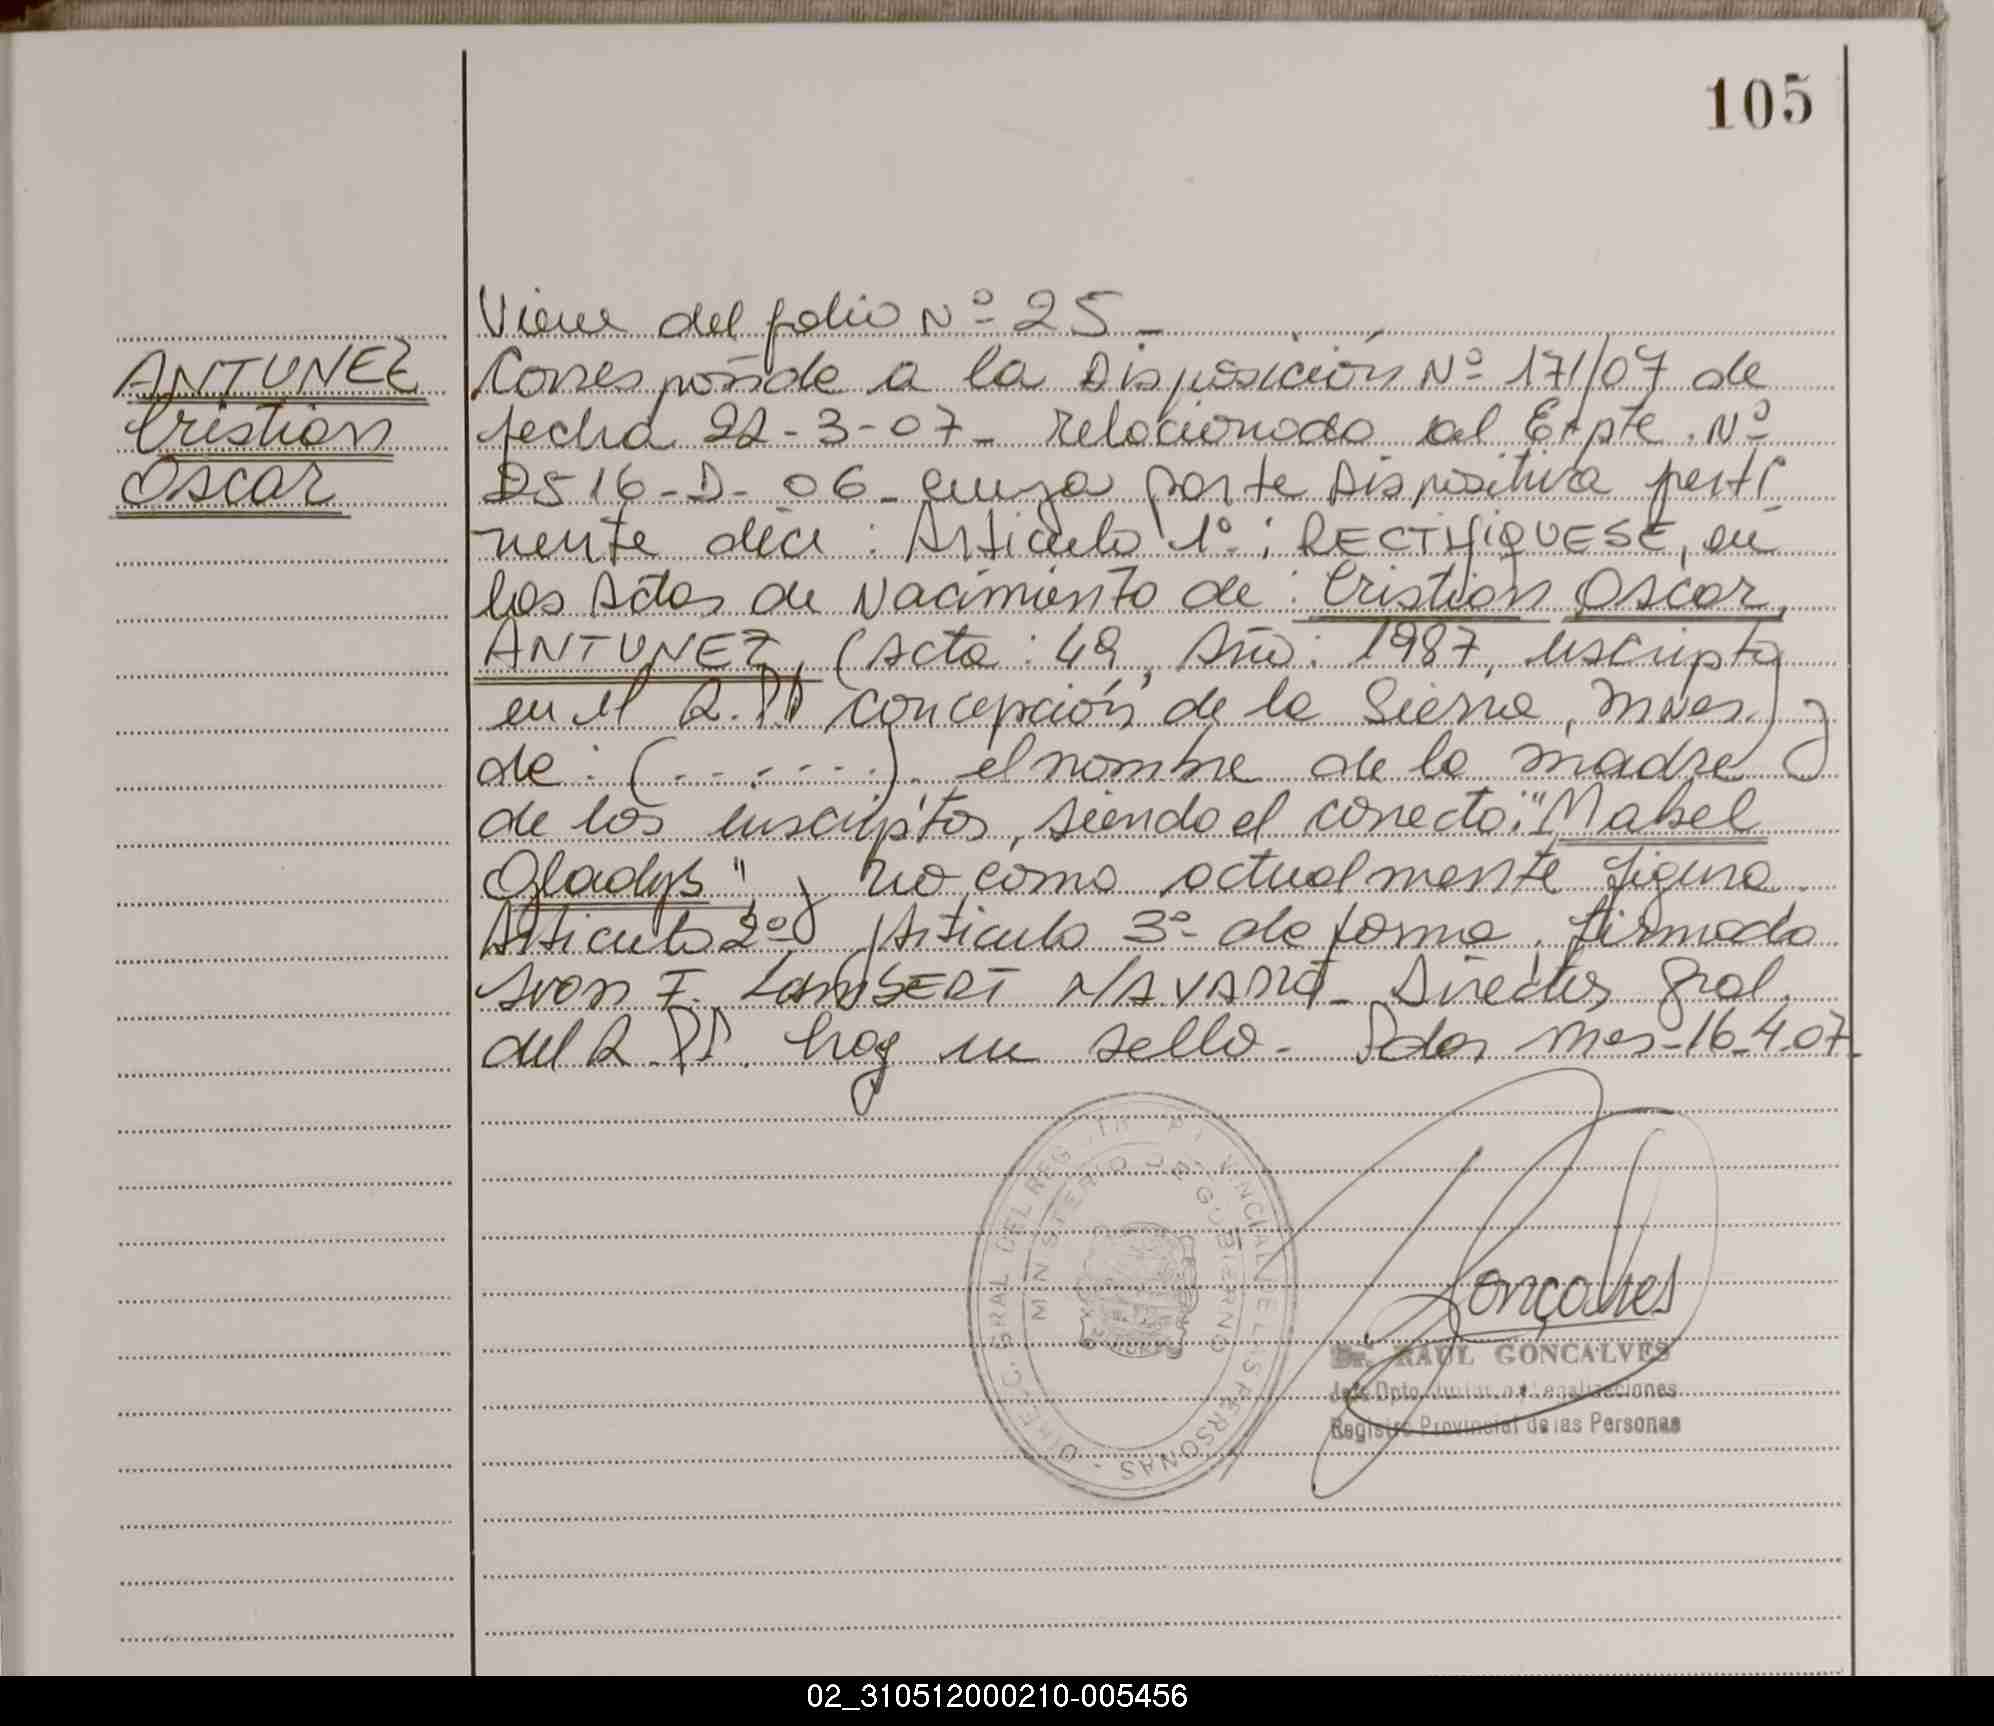 105
Viene del folio Nº 25_
ANTUNEZ
Cristian
Oscar
Corresponde a la Disposición Nº 171/07 de
fecha 22-3-07- relacionado al Expte. Nº
2516-D-06_ cuya parte Dispositiva perti
nente dice: Articulo 1º: RECTIFIQUESE, en
las Actas de Nacimiento de: Cristian Oscar,
ANTUNEZ, (Acta: 49, Año: 1987, inscripto
en el R.PP Concepción de la Sierra, Mnes.) y
de: (.......). el nombre de la madre
de los inscriptos, siendo el correcto: "Mabel
Gladys" y no como actualmente figura.
Articulo 2º y Articulo 3º de forma. firmado
Ivan F. LambERT NAVARRO_ Director gral.
del R.PP. hay un sello. Pdas Mnes-16-4-07_
DIREC. GRAL DEL REG. PROVINCIAL DE LAS PERSONAS -
MINISTERIO DE GOBIERNO
Gonçalves
Dr. RAUL GONCALVES
Jefe Dpto. y Legalizaciones
Registro Provincial de las Personas
02_310512000210-005456